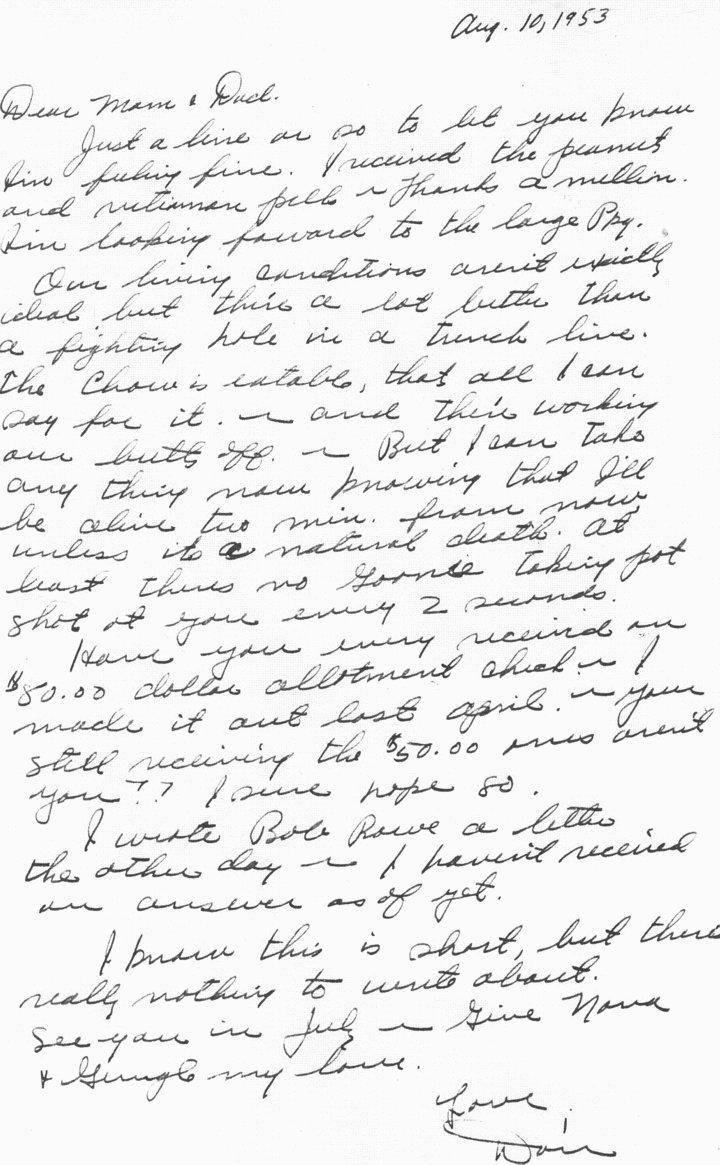 Aug. 10, 1953
Dear Mom & Dad.
Just a line or so to let you know
I'm feeling fine. I received the peanuts
and vitiaman pills ~ Thanks a million.
I'm looking forward to the large Pkg.
Our living conditions aren't exactly
ideal but their a lot better than
a fighting hole in a trench line.
the Chow is eatable, that all I can
say for it. ~ and their working
our butts off. ~ But I can take
any thing now knowing that I'll
be alive two min. from now,
unless its a natural death. At
least theres no Goonie taking pot
shot at you every 2 seconds.
Have you every received an
$80.00 dollar allotment check ~ I
made it out last april. ~ your
still receiving the $50.00 ones aren't
you?? I sure hope so.
I wrote Bob Rowe a letter
the other day ~ I haven't received
an answer as of yet.
I know this is short, but there
really nothing to write about.
See you in July ~ Give Nona
& my love.
Love,
Don